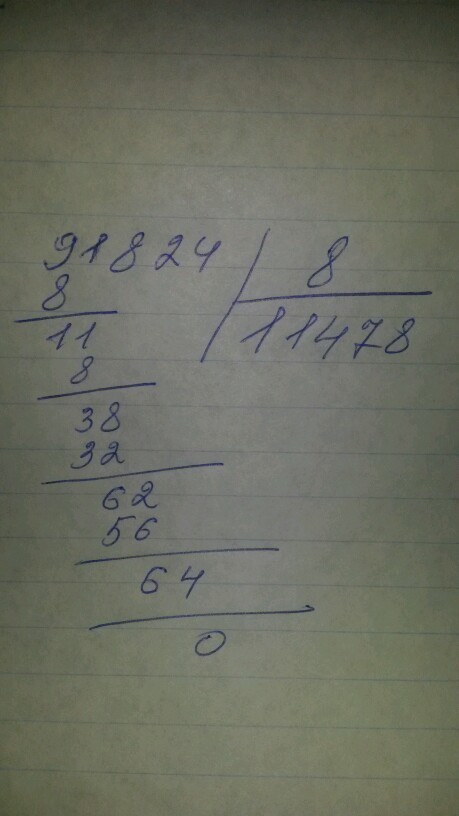 91824 8
8 11478
11
8
38
32
62
56
64
0